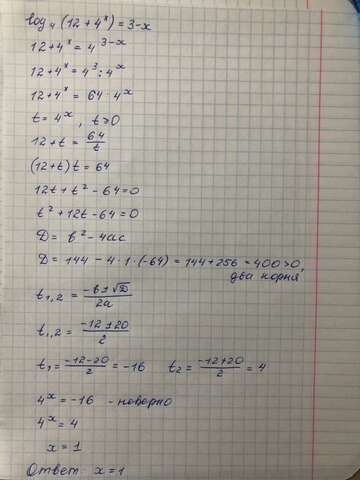 log₄(12+4ˣ)=3-x
12+4ˣ=4³⁻ˣ
12+4ˣ=4³:4ˣ
12+4ˣ=64·4ˣ
t=4ˣ, t>0
12+t=64/t
(12+t)t=64
12t+t²-64=0
t²+12t-64=0
D=b²-4ac
D=144-4·1·(-64)=144+256=400>0,
два корня
t₁,₂=(-b±√D)/2a
t₁,₂=(-12±20)/2
t₁=(-12-20)/2=-16 t₂=(-12+20)/2=4
4ˣ=-16 -неверно
4ˣ=4
x=1
Ответ: x=1